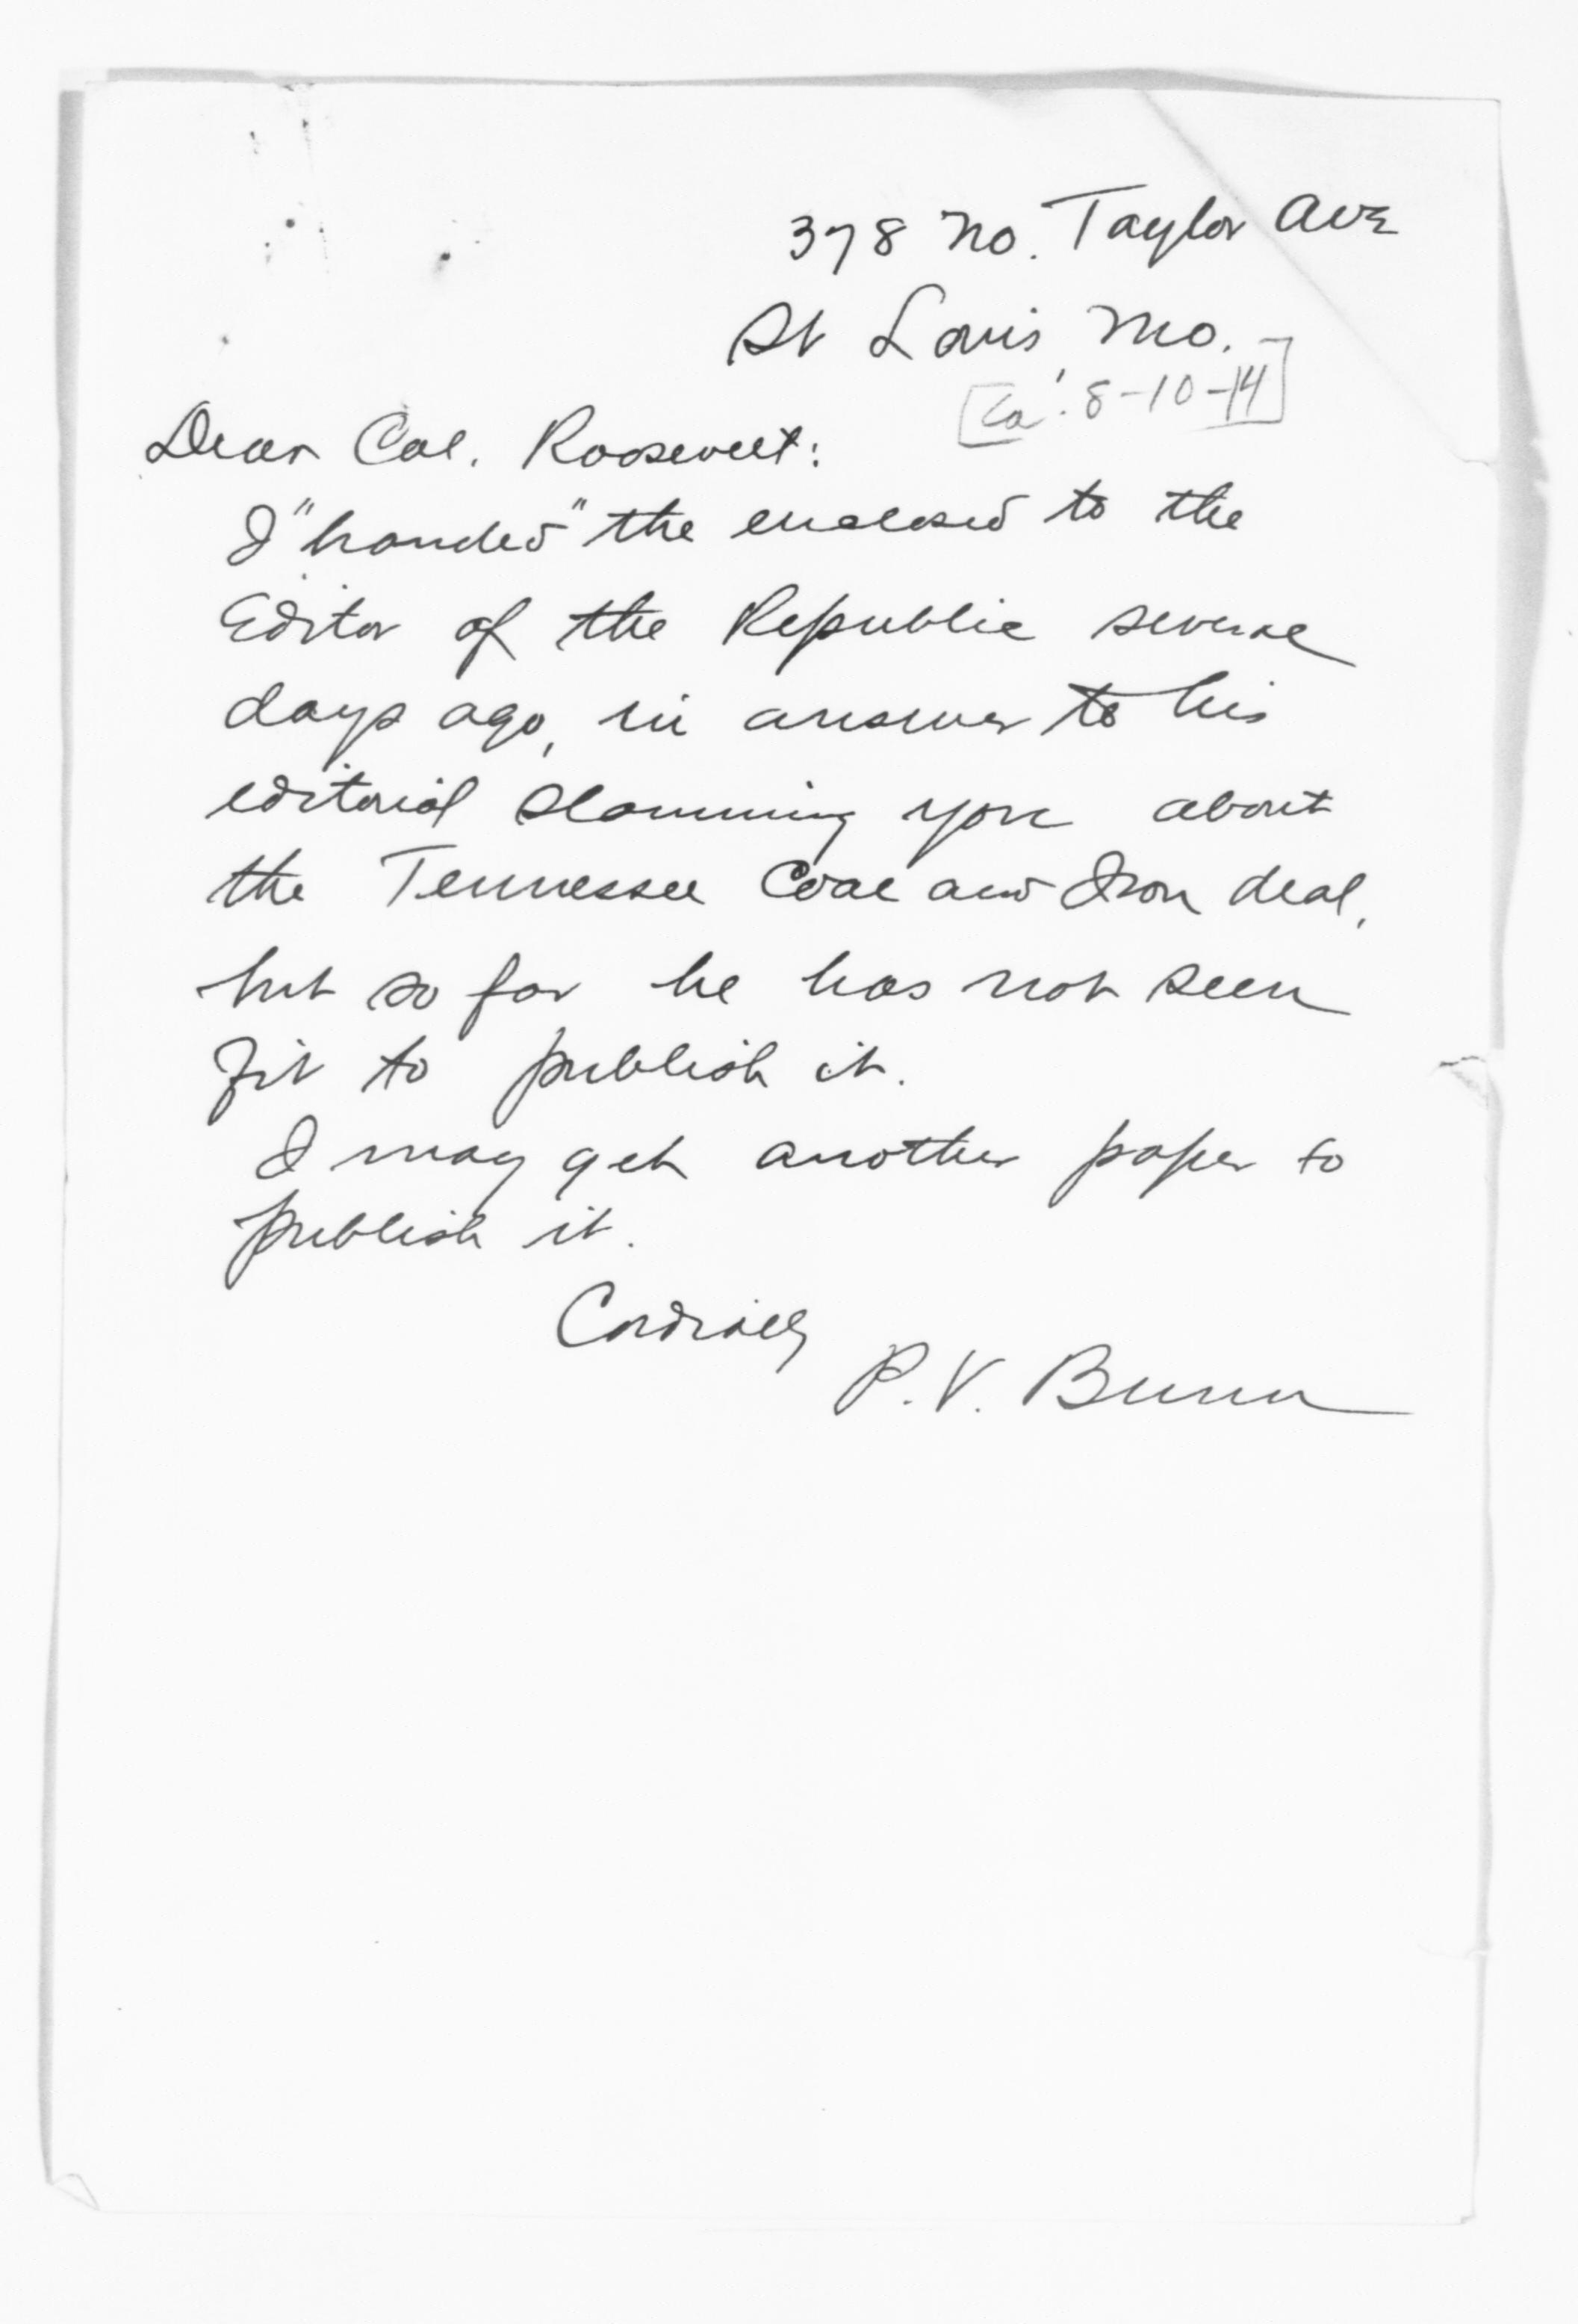 378 No. Taylor Ave
St Louis, Mo.
[Ca. 8-10-14]
Dear Col. Roosevelt:
I "handed" the enclosed to the
Editor of the Republic several
days ago, in answer to his
editorial slamming you about
the Tennessee Coal and Iron deal,
but so far he has not seen
fit to publish it.
I may get another paper to
publish it.
Cordially
P.V. Bunn